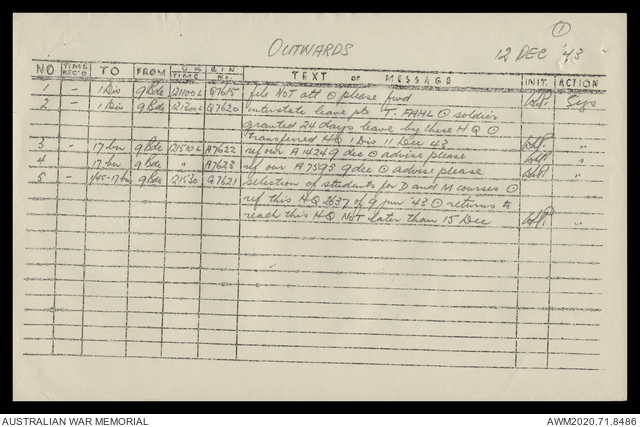 1
OUTWARDS
12 DEC '43
NO TIME REC'D TO FROM TIME G.R. IN No. TEXT OF MESSAGE INIT. ACTION
1 - 1 Div 9 Bde 121100L G7615 file NOT att ⊙ please fwd Sigs
2 - 1 Div 9 Bde 121300L G7620 interstate leave pte T. FAHL ⊙ soldier
granted 24 days leave by these HQ ⊙
transferred HQ 1 Div 11 Dec 43
3 - 17 bn 9 Bde 121510L A7622 ref our A1424 9 dec ⊙ advise please "
4 17 bn 9 Bde " A7623 ref our A7595 9 dec ⊙ advise please "
5 - 1/45-17 bn 9 Bde 121530 G7621 selection of students for D and M courses ⊙
ref this HQ 2637 of 9 jun '43 ⊙ returns to
reach this HQ NOT later than 15 Dec "
AUSTRALIAN WAR MEMORIAL
AWM2020.71.8486